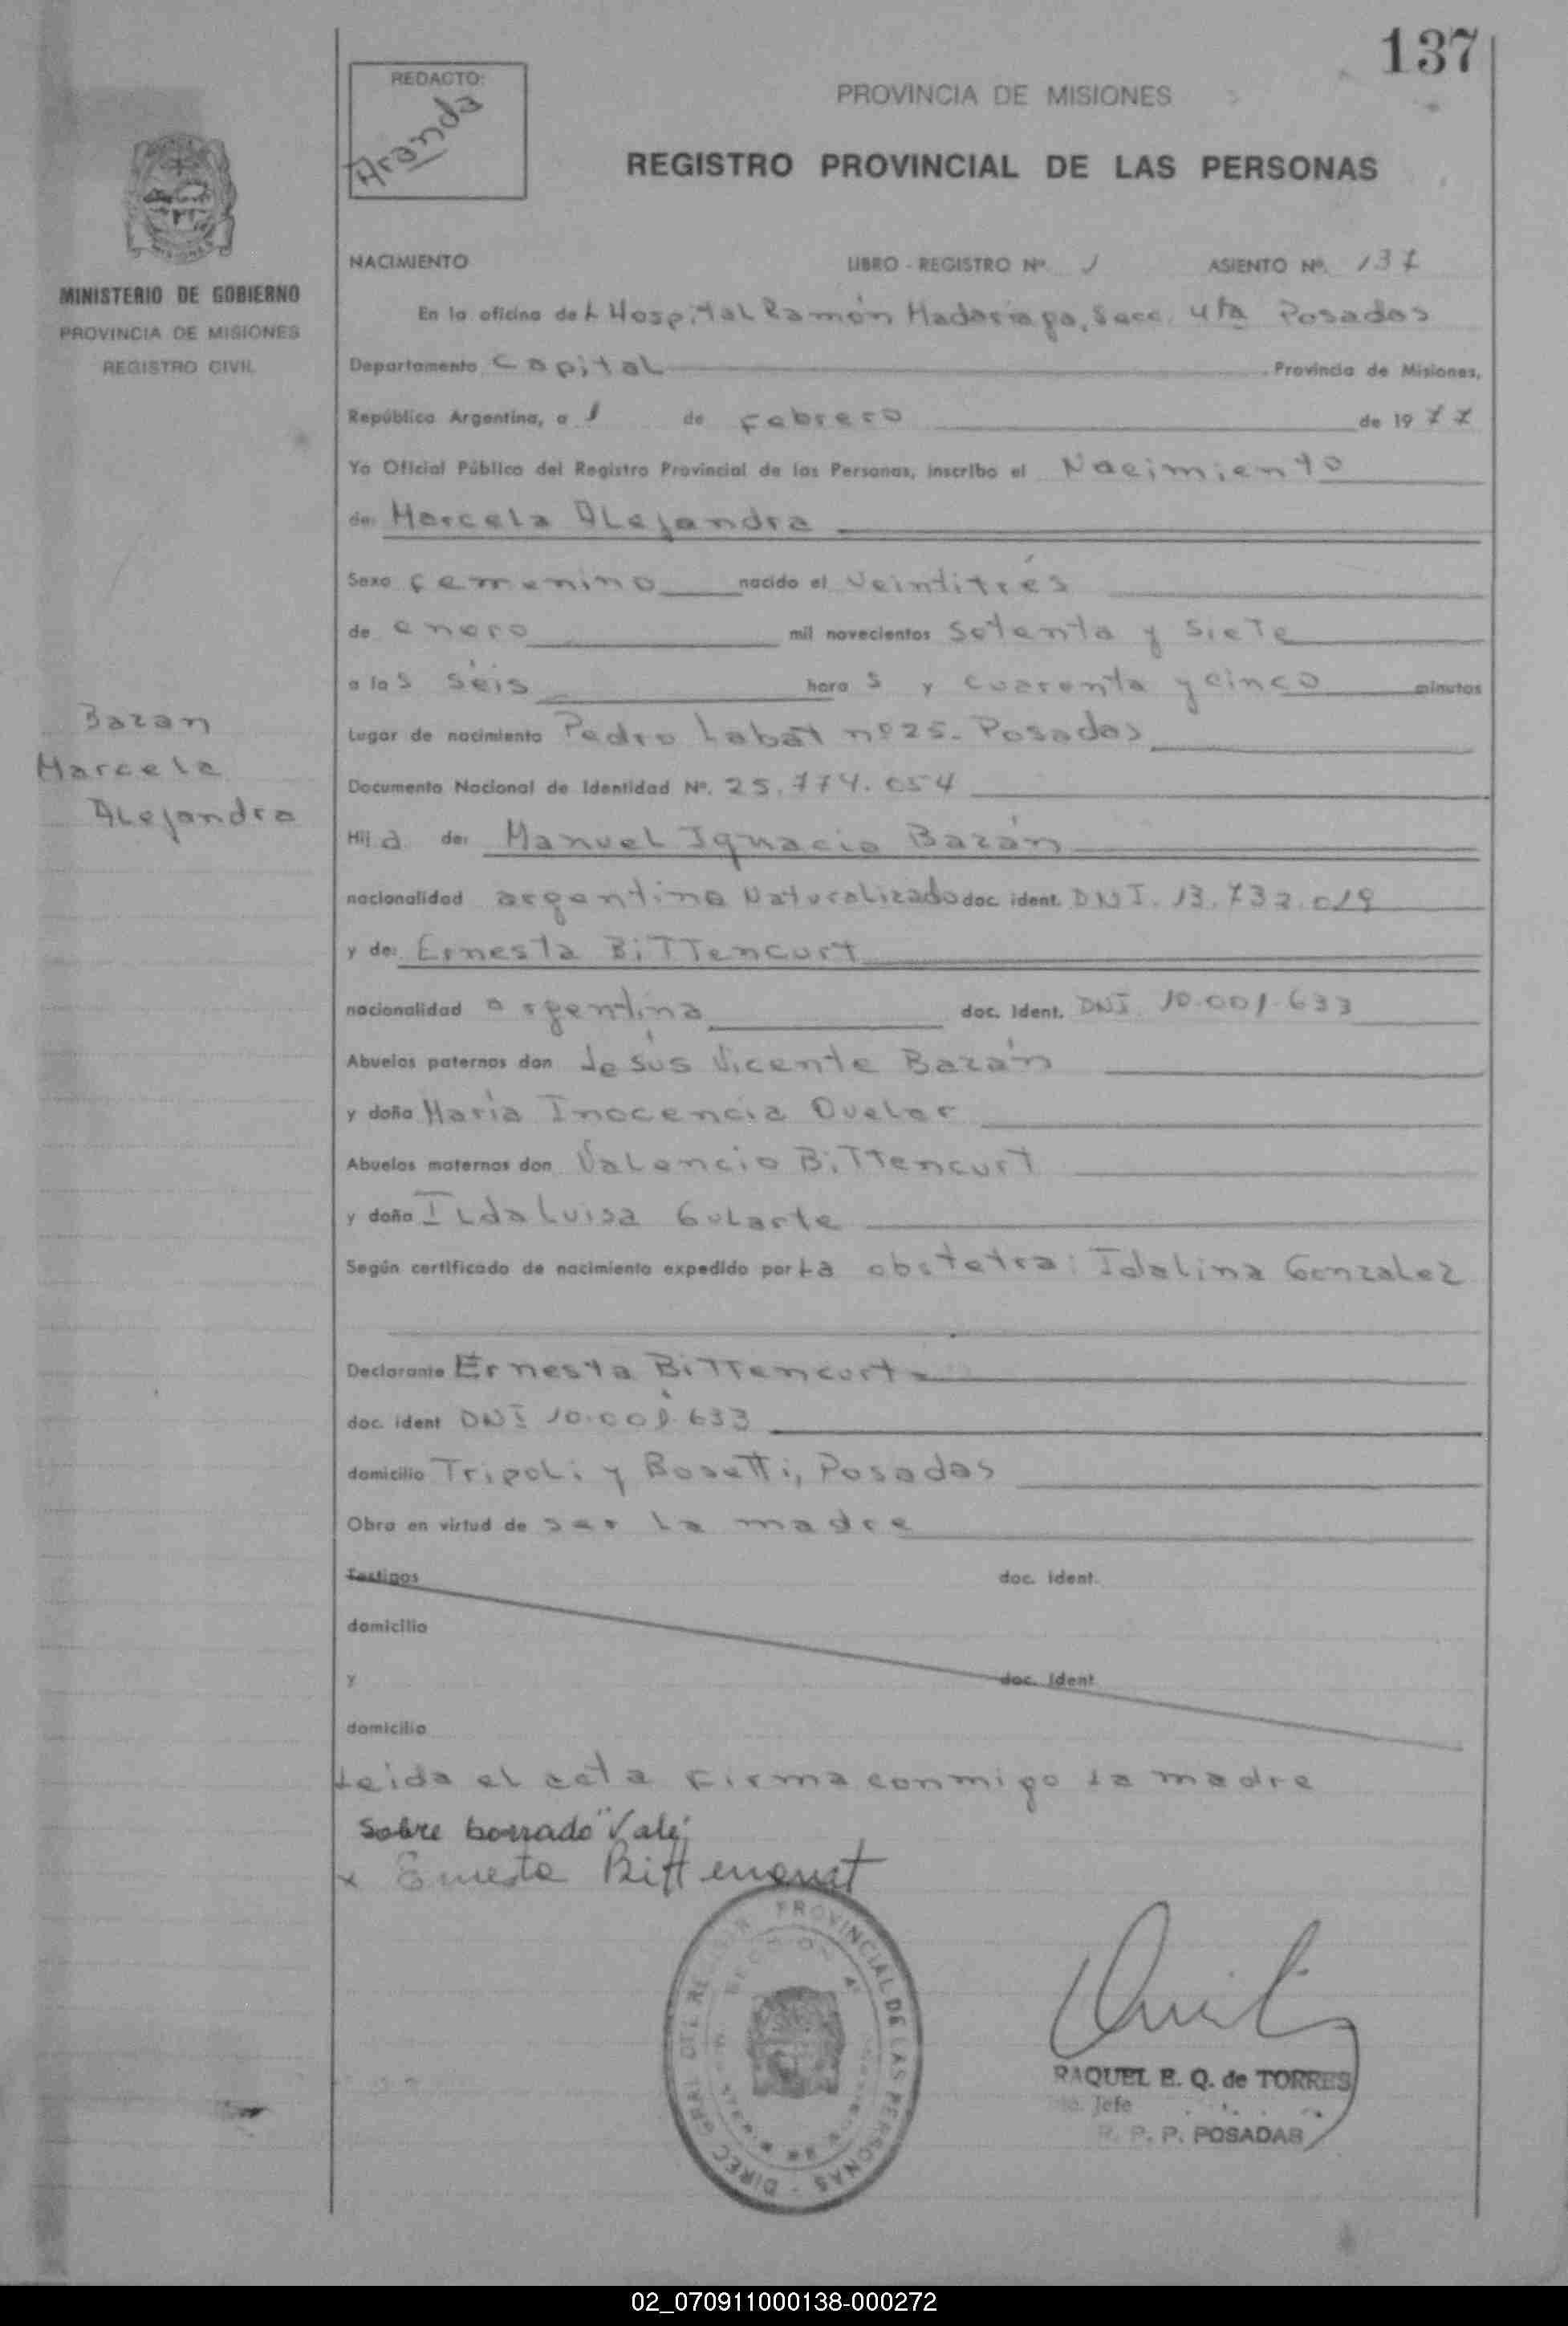 137
REDACTO:
Aranda
PROVINCIA DE MISIONES
REGISTRO PROVINCIAL DE LAS PERSONAS
MISIONES
MINISTERIO DE GOBIERNO
PROVINCIA DE MISIONES
REGISTRO CIVIL
NACIMIENTO LIBRO - REGISTRO Nº 1 ASIENTO Nº. 137
En la oficina del Hospital Ramón Madariaga, Secc. 4ta Posadas
Departamento Capital Provincia de Misiones,
República Argentina, a 1 de Febrero de 1977
Yo Oficial Público del Registro Provincial de las Personas, inscribo el Nacimiento
de: Marcela Alejandra
Sexo femenino nacido el veintitrés
de enero mil novecientos setenta y siete
a las séis horas y cuarenta y cinco minutos
Bazan
Marcela
Alejandra
Lugar de nacimiento Pedro Labat nº 25- Posadas
Documento Nacional de Identidad Nº. 25.774.054
Hija de: Manuel Ignacio Bazán
nacionalidad argentino Naturalizado doc. ident. DNI. 13.732.019
y de: Ernesta BiTTencurt
nacionalidad argentina doc. ident. DNI. 10.001.633
Abuelos paternos don Jesús Vicente Bazán
y doña María Inocencia Duelar
Abuelos maternos don Valencio BiTTencurT
y doña Ilda Luisa Gularte
Según certificado de nacimiento expedido por La obstetra: Idalina Gonzalez
Declarante Ernesta BiTTencurt-
doc. ident DNI 10.001.633
domicilio Tripoli y Bosetti, Posadas
Obra en virtud de ser la madre
Testigos doc. ident.
domicilio
y doc. ident.
domicilio
Leida el acta firma conmigo la madre
Sobre borrado "Vale"
x Ernesta Bittencurt
DIREC. GRAL. DEL REGISTR. PROVINCIAL DE LAS PERSONAS -
SECCION 4ª
RAQUEL E. Q. de TORRES
Jefe
R. P. P. POSADAS
02_070911000138-000272